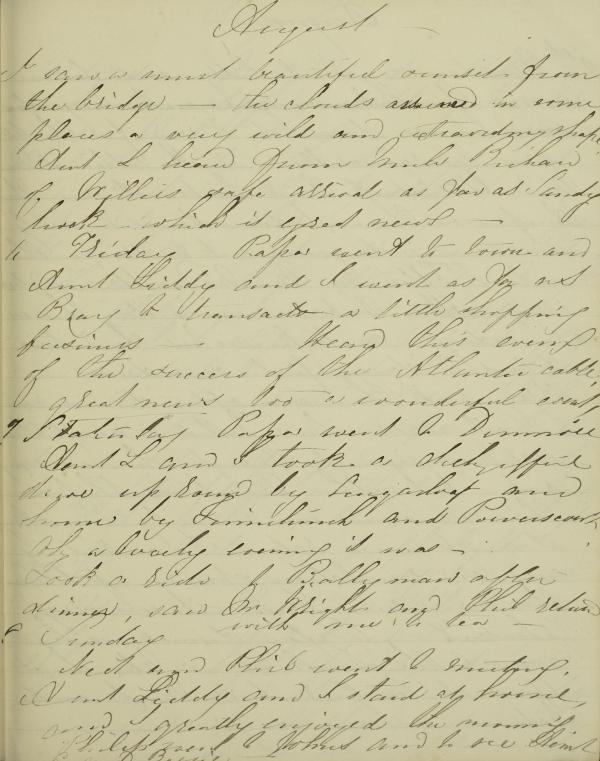 August
I saw a most beautiful sunset from
the bridge — the clouds assumed in some
places a very wild and extraordinary shape
Aunt L heard from Uncle
of Willie's safe arrival as far as Sandy
hook — which is great news —
Friday Papa went to town and
Aunt Liddy and I went as far as
Bray to transact a little shopping
business — Heard this evening
of the success of the Atlantic cable,
great news too a wonderful event,
7 Saturday Papa went to
Aunt L and I took a delightful
drive up round by Sugarloaf and
home by and Powerscourt
Oh, a lovely evening it was —
Took a ride to Ballyman after
dinner, saw Wright and Phil return
with me to tea —
8 Sunday
Ned and Phil went to meeting.
Aunt Liddy and I staid at home,
and greatly enjoyed the morning
Philip went to Johns and to see Aunt